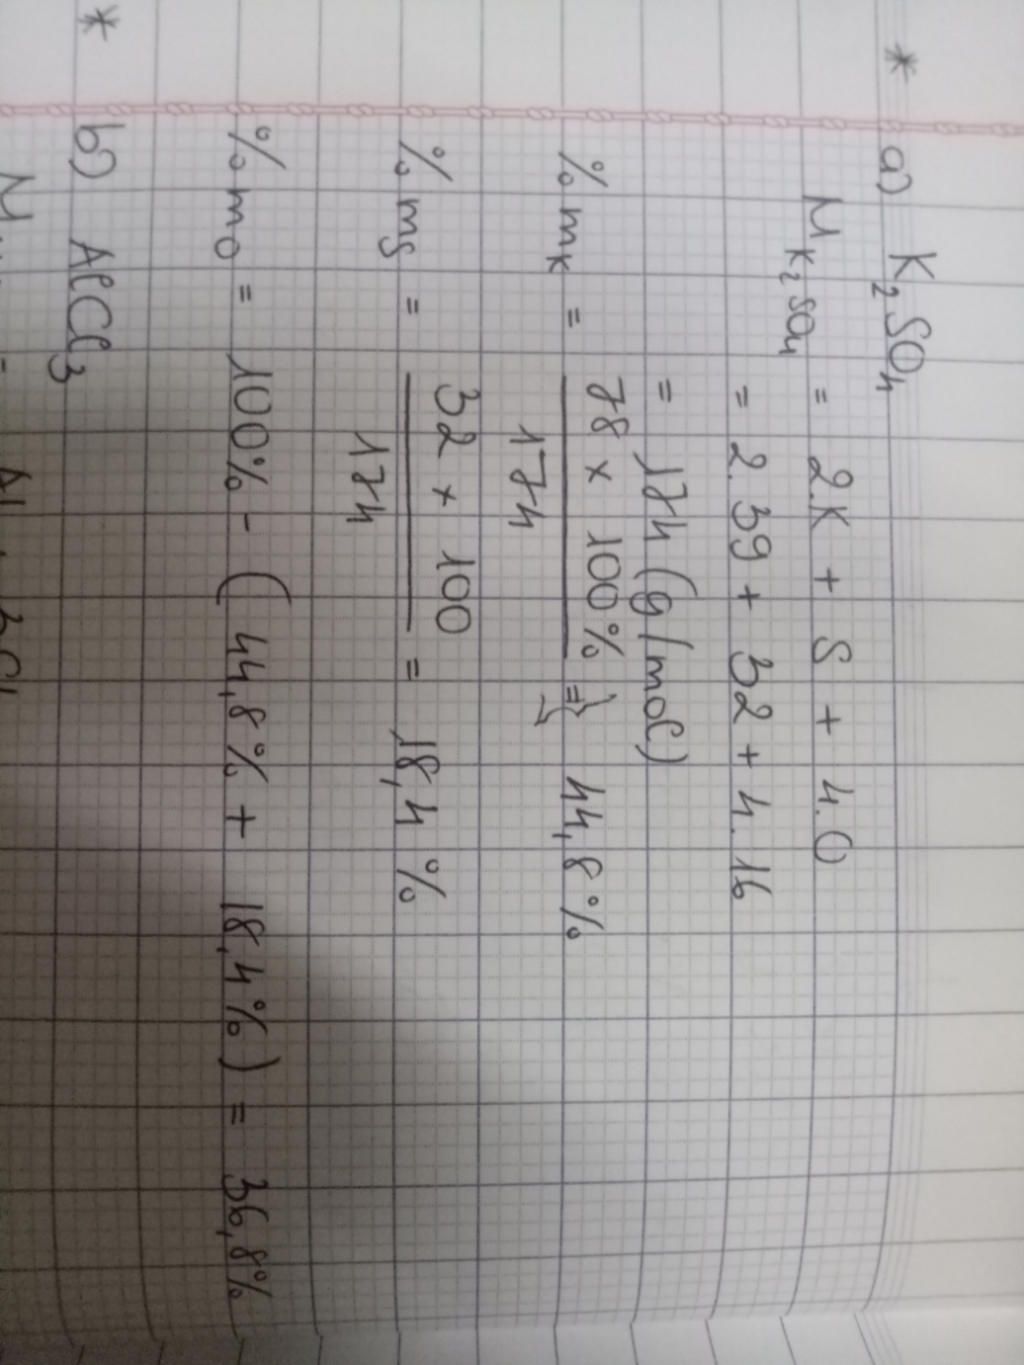 * a) K2SO4
MK2SO4 = 2.K + S + 4.O
= 2.39 + 32 + 4.16
= 174 (g/mol)
%mK = 78 x 100% = 44,8%
174
%mS = 32 x 100 = 18,4 %
174
%mO = 100% - ( 44,8% + 18,4%) = 36,8%
* b) AlCl3